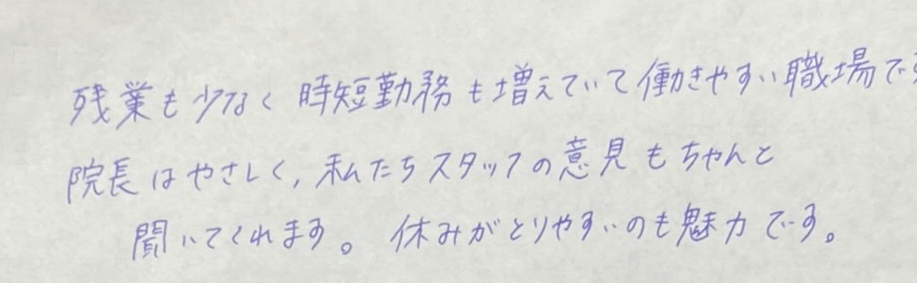 残業も少なく時短勤務も増えていて働きやすい職場です
院長はやさしく、私たちスタッフの意見もちゃんと
聞いてくれます。休みがとりやすいのも魅力です。